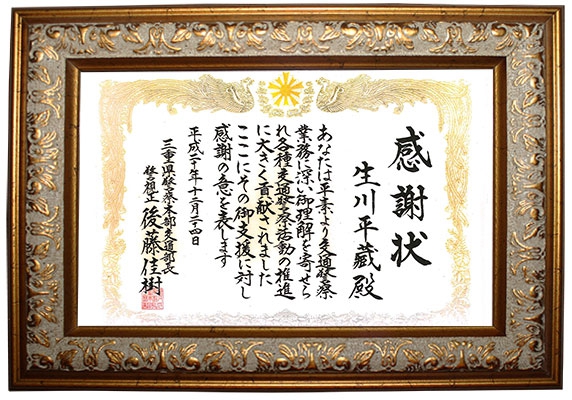 感謝状
生川平藏殿
あなたは平素より交通警察
業務に深い御理解を寄せら
れ各種交通警察活動の推進
に大きく貢献されました
ここにその御支援に対し
感謝の意を表します
平成二十年十二月二十四日
三重県警察本部交通部長
警視正 後藤佳樹